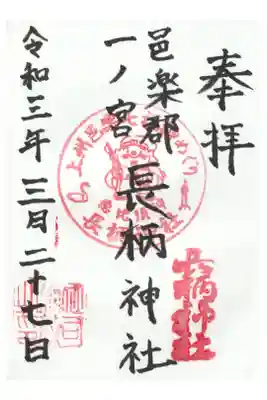 奉拝
邑楽郡
一ノ宮
長柄神社
令和三年三月二十七日